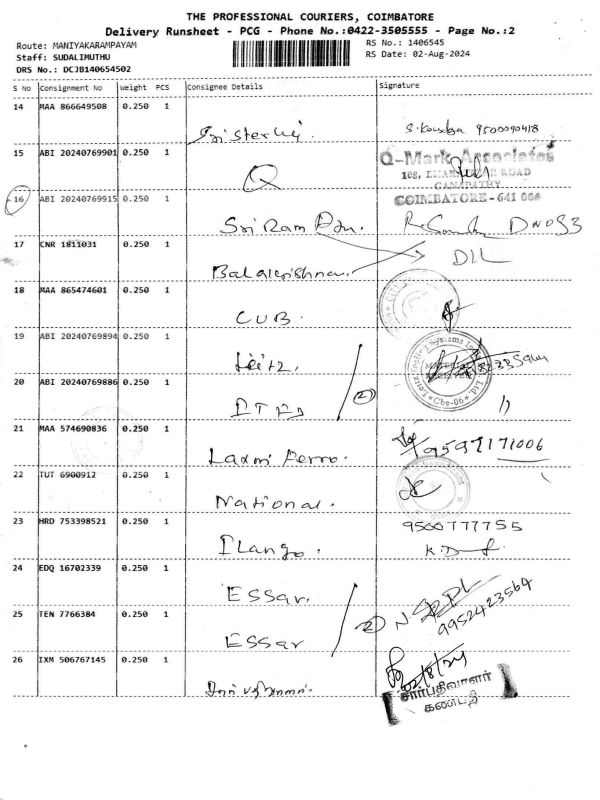 THE PROFESSIONAL COURIERS, COIMBATORE
Delivery Runsheet - PCG - Phone No.:0422-3505555 - Page No.:2
Route: MANIYAKARAMPAYAM
RS No.: 1406545
Staff: SUDALIMUTHU
RS Date: 02-Aug-2024
DRS No.: DCJB140654502
S No Consignment No Weight PCS Consignee Details Signature
14 MAA 866649508 0.250 1
9500090418
15 ABI 20240769901 0.250 1 Q
Q-Mark Associates
ROAD
GANAPATHY
COIMBATORE - 641 006
16 ABI 20240769915 0.250 1 Sri Ram
17 CNR 1811031 0.250 1 Balakrishnan. DIL
18 MAA 865474601 0.250 1 CUB.
19 ABI 20240769894 0.250 1 Leitz
20 ABI 20240769886 0.250 1
Cbe-06
21 MAA 574690836 0.250 1 Laxmi Ferro. 9597171006
22 TUT 6900912 0.250 1 National.
23 HRD 753398521 0.250 1 Ilango. 9500777755
24 EDQ 16702339 0.250 1 ESSar.
9952423564
25 TEN 7766384 0.250 1 ESSar
26 IXM 506767145 0.250 1
02/8/24
சார்பதிவாளர்
கணபதி